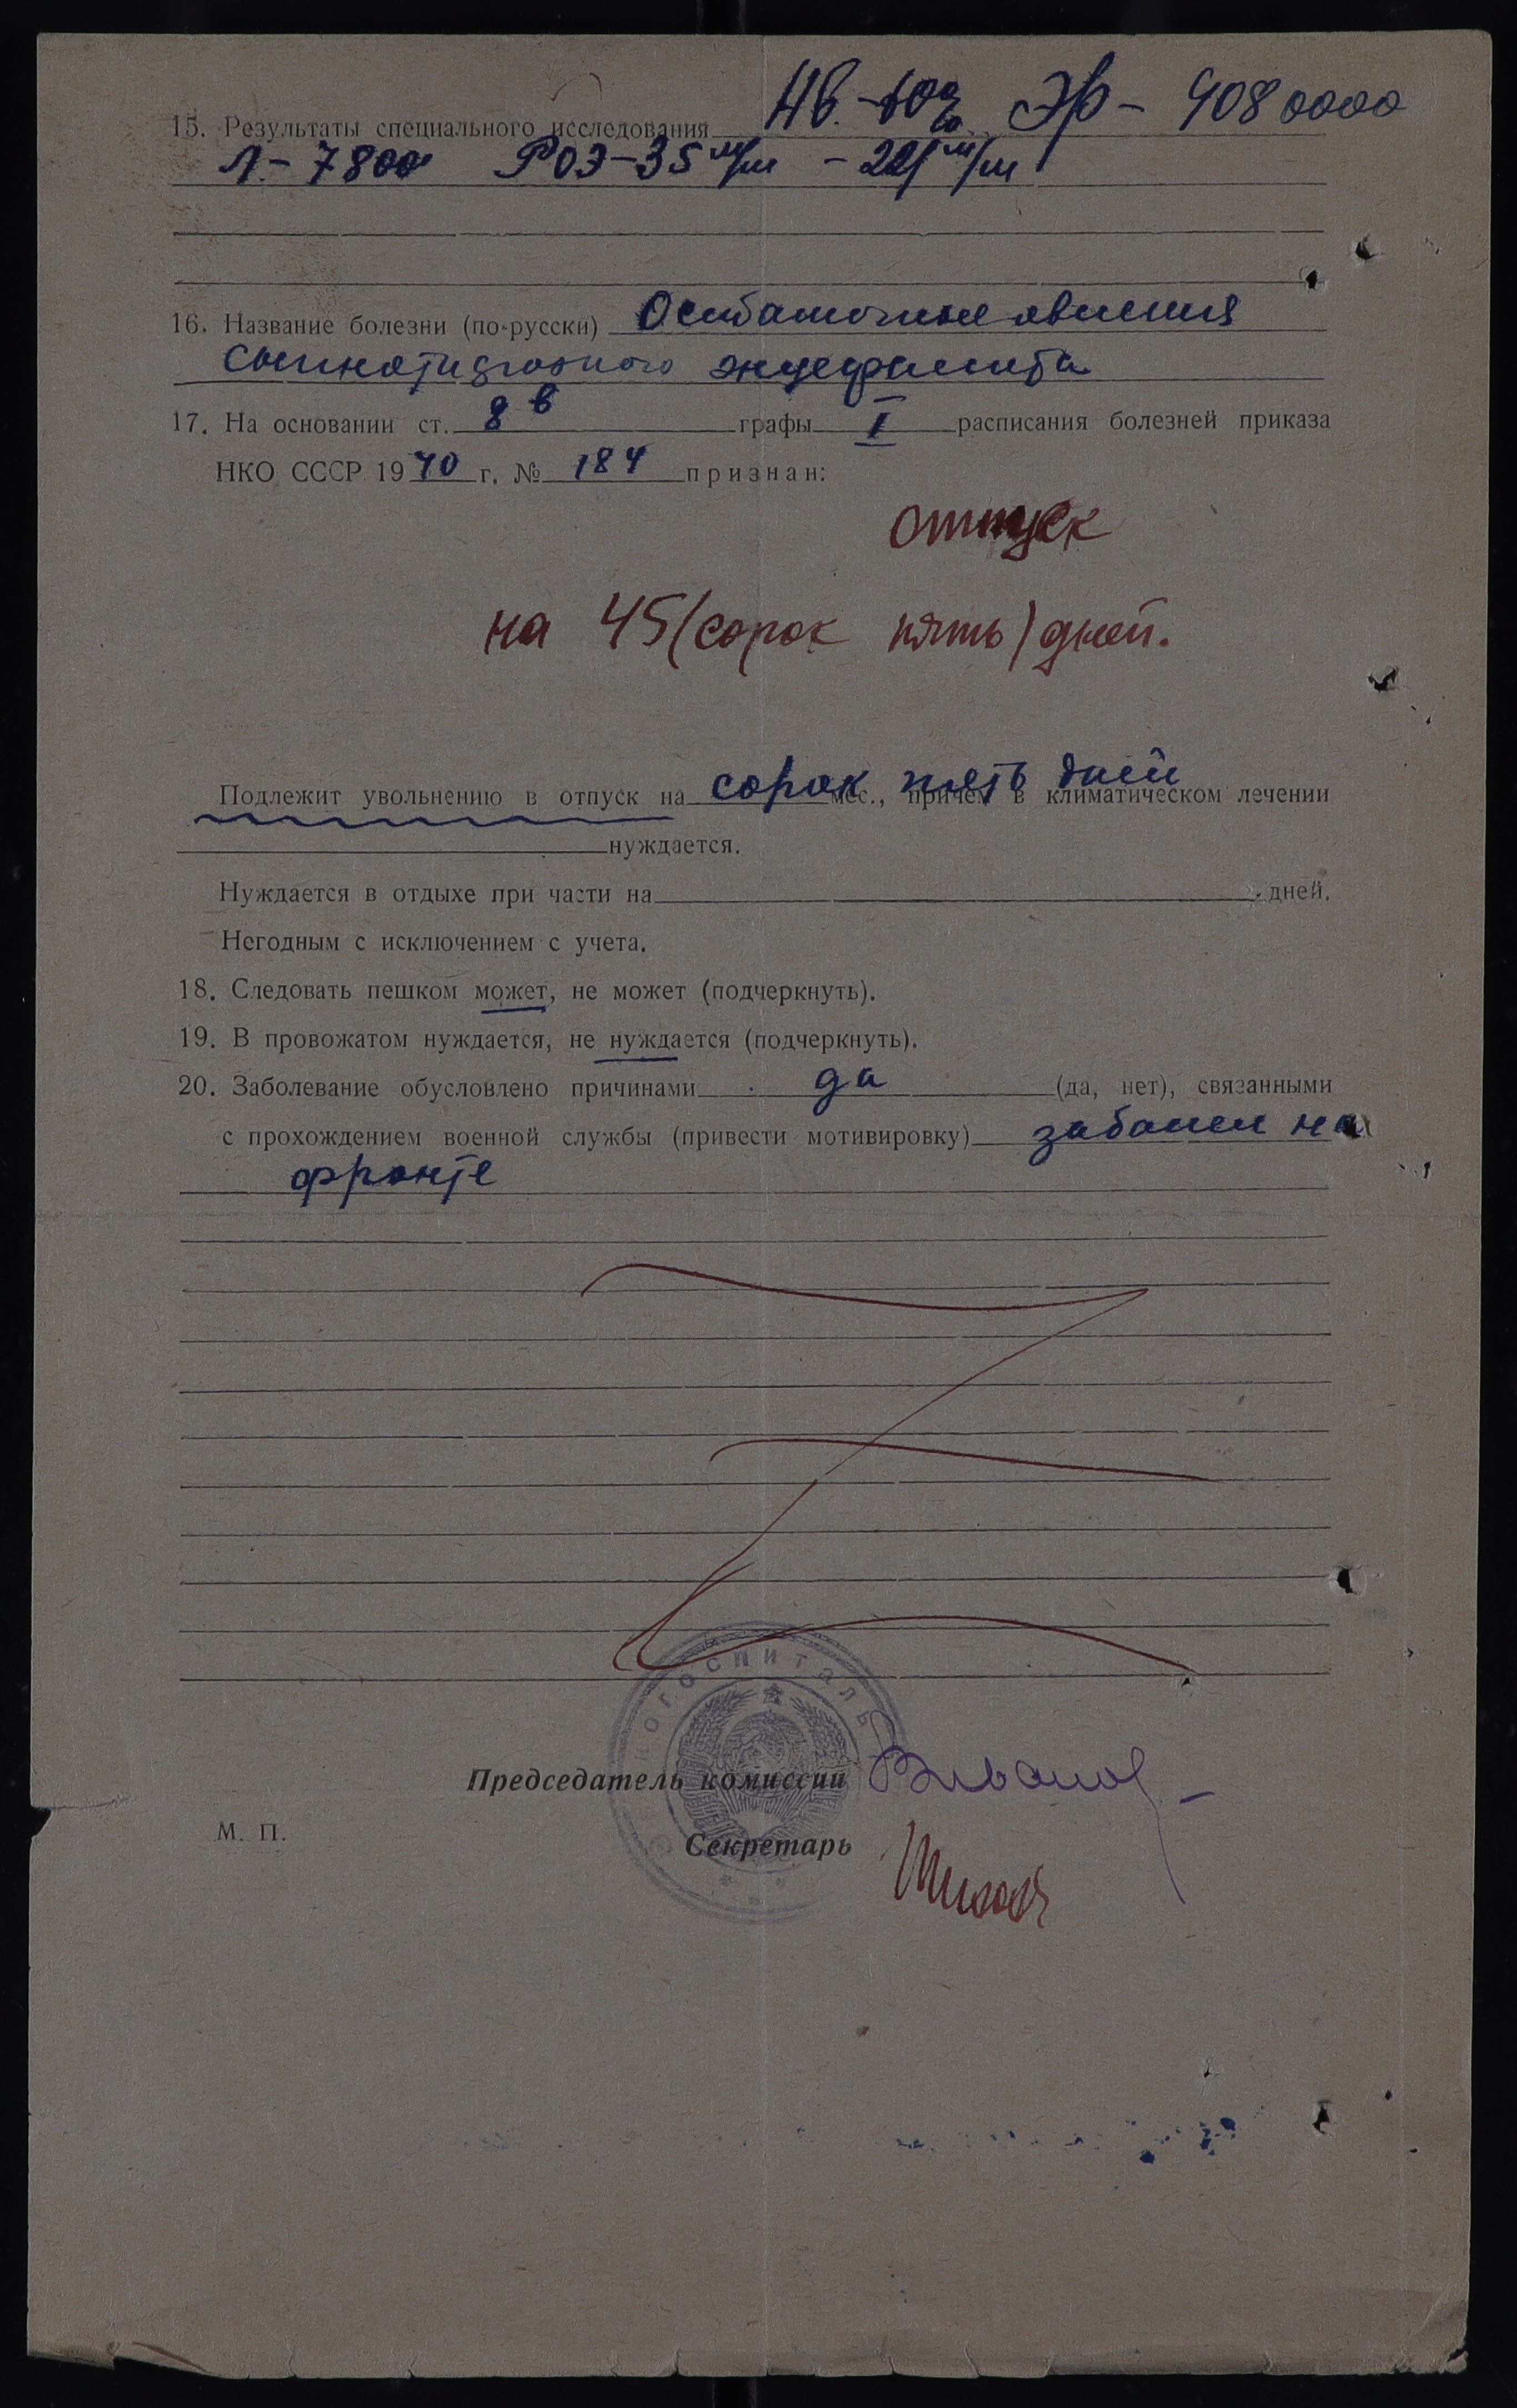 Нв.-60% Эр- 4080000
15. Результаты специального исследования
Л.- 7800 РОЭ-35 м/м -
16. Название болезни (по-русски) Остаточные явления
сыпнотифозного энцефалита
17. На основании ст. 8 в графы I расписания болезней приказа
НКО СССР 1940 г. № 184 признан:
отпуск
на 45 (сорок пять) дней.
Подлежит увольнению в отпуск на сорок пять дней мес., причем в климатическом лечении
нуждается.
Нуждается в отдыхе при части на дней.
Негодным с исключением с учета.
18. Следовать пешком может, не может (подчеркнуть).
19. В провожатом нуждается, не нуждается (подчеркнуть).
20. Заболевание обусловлено причинами да (да, нет), связанными
с прохождением военной службы (привести мотивировку) заболел на
фронте
Эвакогоспиталь
Председатель комиссии
М. П.
Секретарь